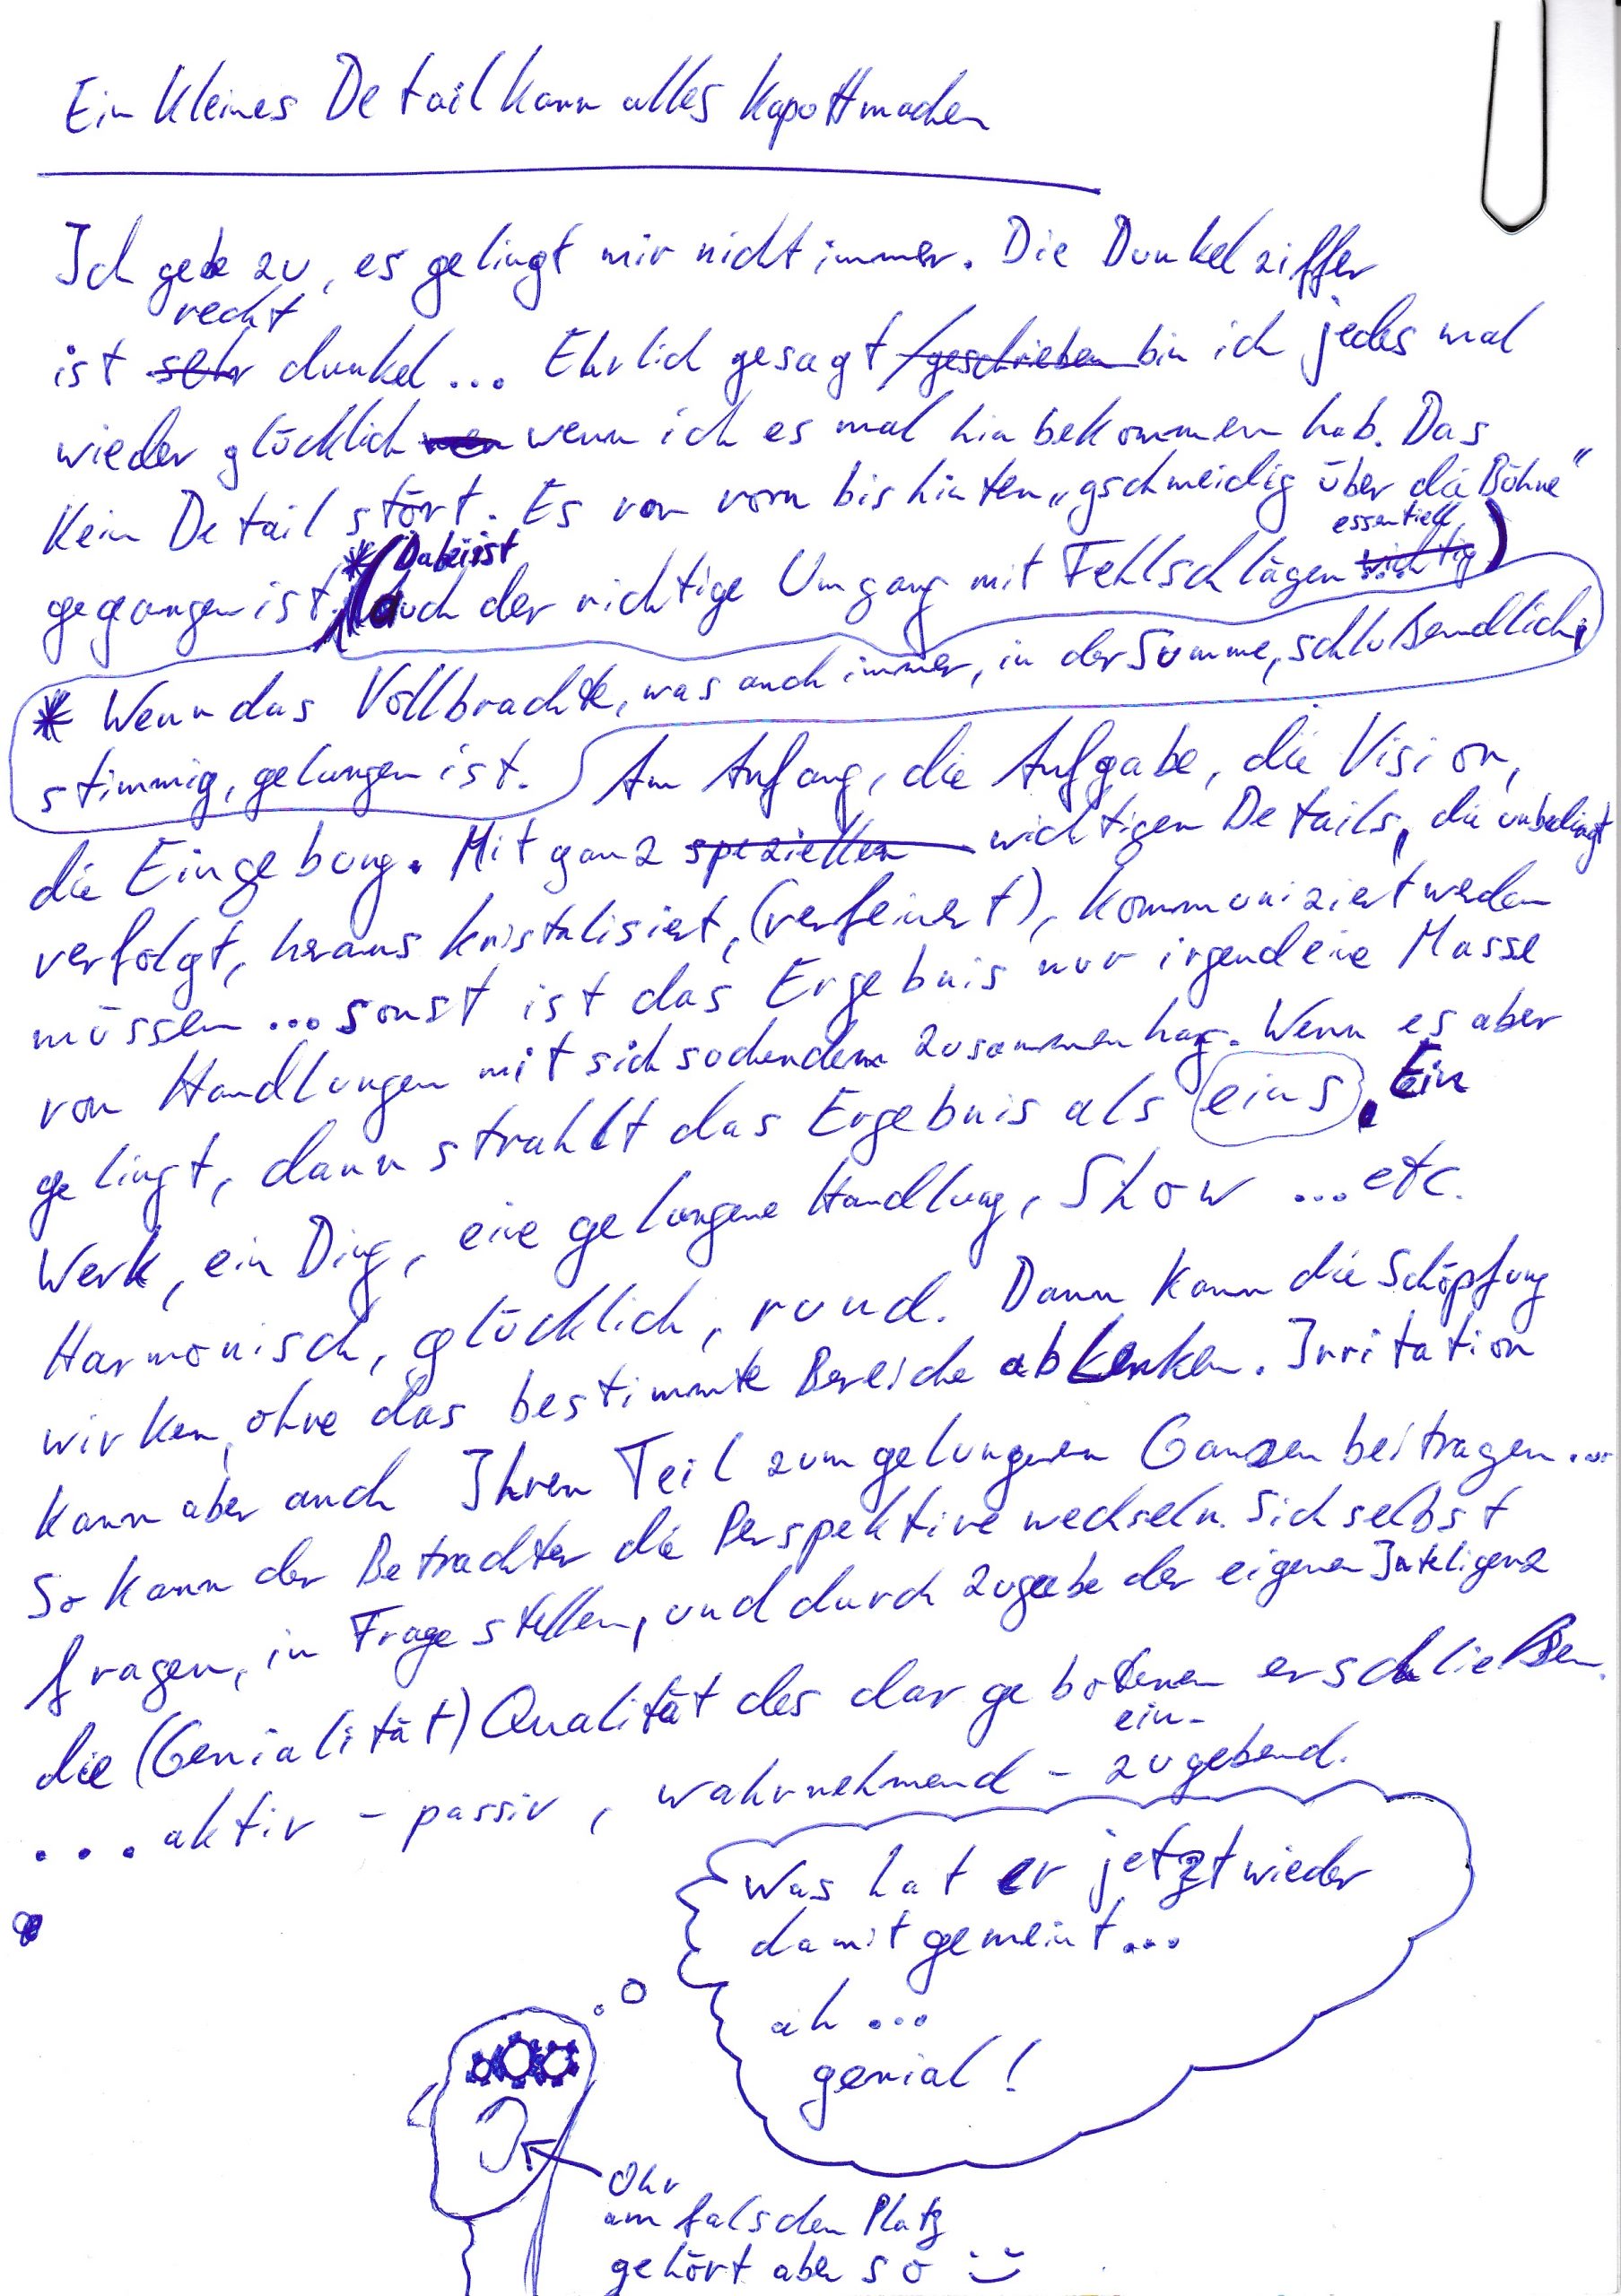 Ein kleines Detail kann alles kapottmachen
Ich gebe zu, es gelingt mir nicht immer. Die Dunkelziffer
recht
ist sehr dunkel ... Ehrlich gesagt /geschrieben bin ich jedes mal
wieder glücklich wen wenn ich es mal hinbekommen hab. Das
kein Detail stört. Es von vorn bis hinten „gschmeidig über die Bühne"
gegangen ist. * (Dabei ist auch der richtige Umgang mit Fehlschlägen wichtig essentiell)
* Wenn das Vollbrachte, was auch immer, in der Summe, schlußendlich,
stimmig, gelungen ist. Am Anfang, die Aufgabe, die Vision,
die Eingebung. Mit ganz speziellen wichtigen Details, die unbedingt
verfolgt, heraus kristalisiert, (verfeinert), kommuniziert werden
müssen ... sonst ist das Ergebnis nur irgendeine Masse
von Handlungen mit sich suchendem zusammenhang. Wenn es aber
gelingt, dann strahlt das Ergebnis als eins. Ein
Werk, ein Ding, eine gelungene Handlung, Show ... etc.
Harmonisch, glücklich, rund. Dann kann die Schöpfung
wirken, ohne das bestimmte Bereiche ablenken. Irritation
kann aber auch Ihren Teil zum gelungenen Ganzen beitragen...
So kann der Betrachter die Perspektive wechseln. Sich selbst
fragen, in Frage stellen, und durch zugabe der eigenen Inteligenz
die (Genialität) Qualität des dargebotenen erschließen.
ein-
... aktiv - passiv, wahrnehmend - zugebend.
Was hat er jetzt wieder
damit gemeint...
ah ...
genial!
Ohr
am falschen Platz
gehört aber so